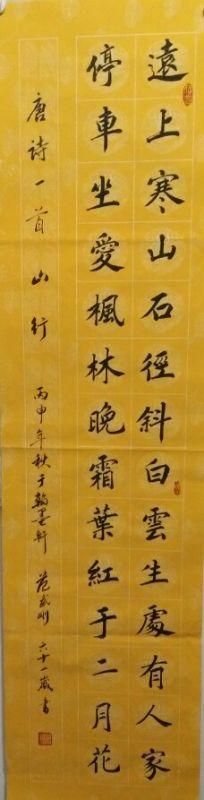 遠上寒山石徑斜白雲生處有人家
停車坐愛楓林晚霜葉紅于二月花
唐詩一首山行丙申年秋于翰墨軒范武刚六十一歲書